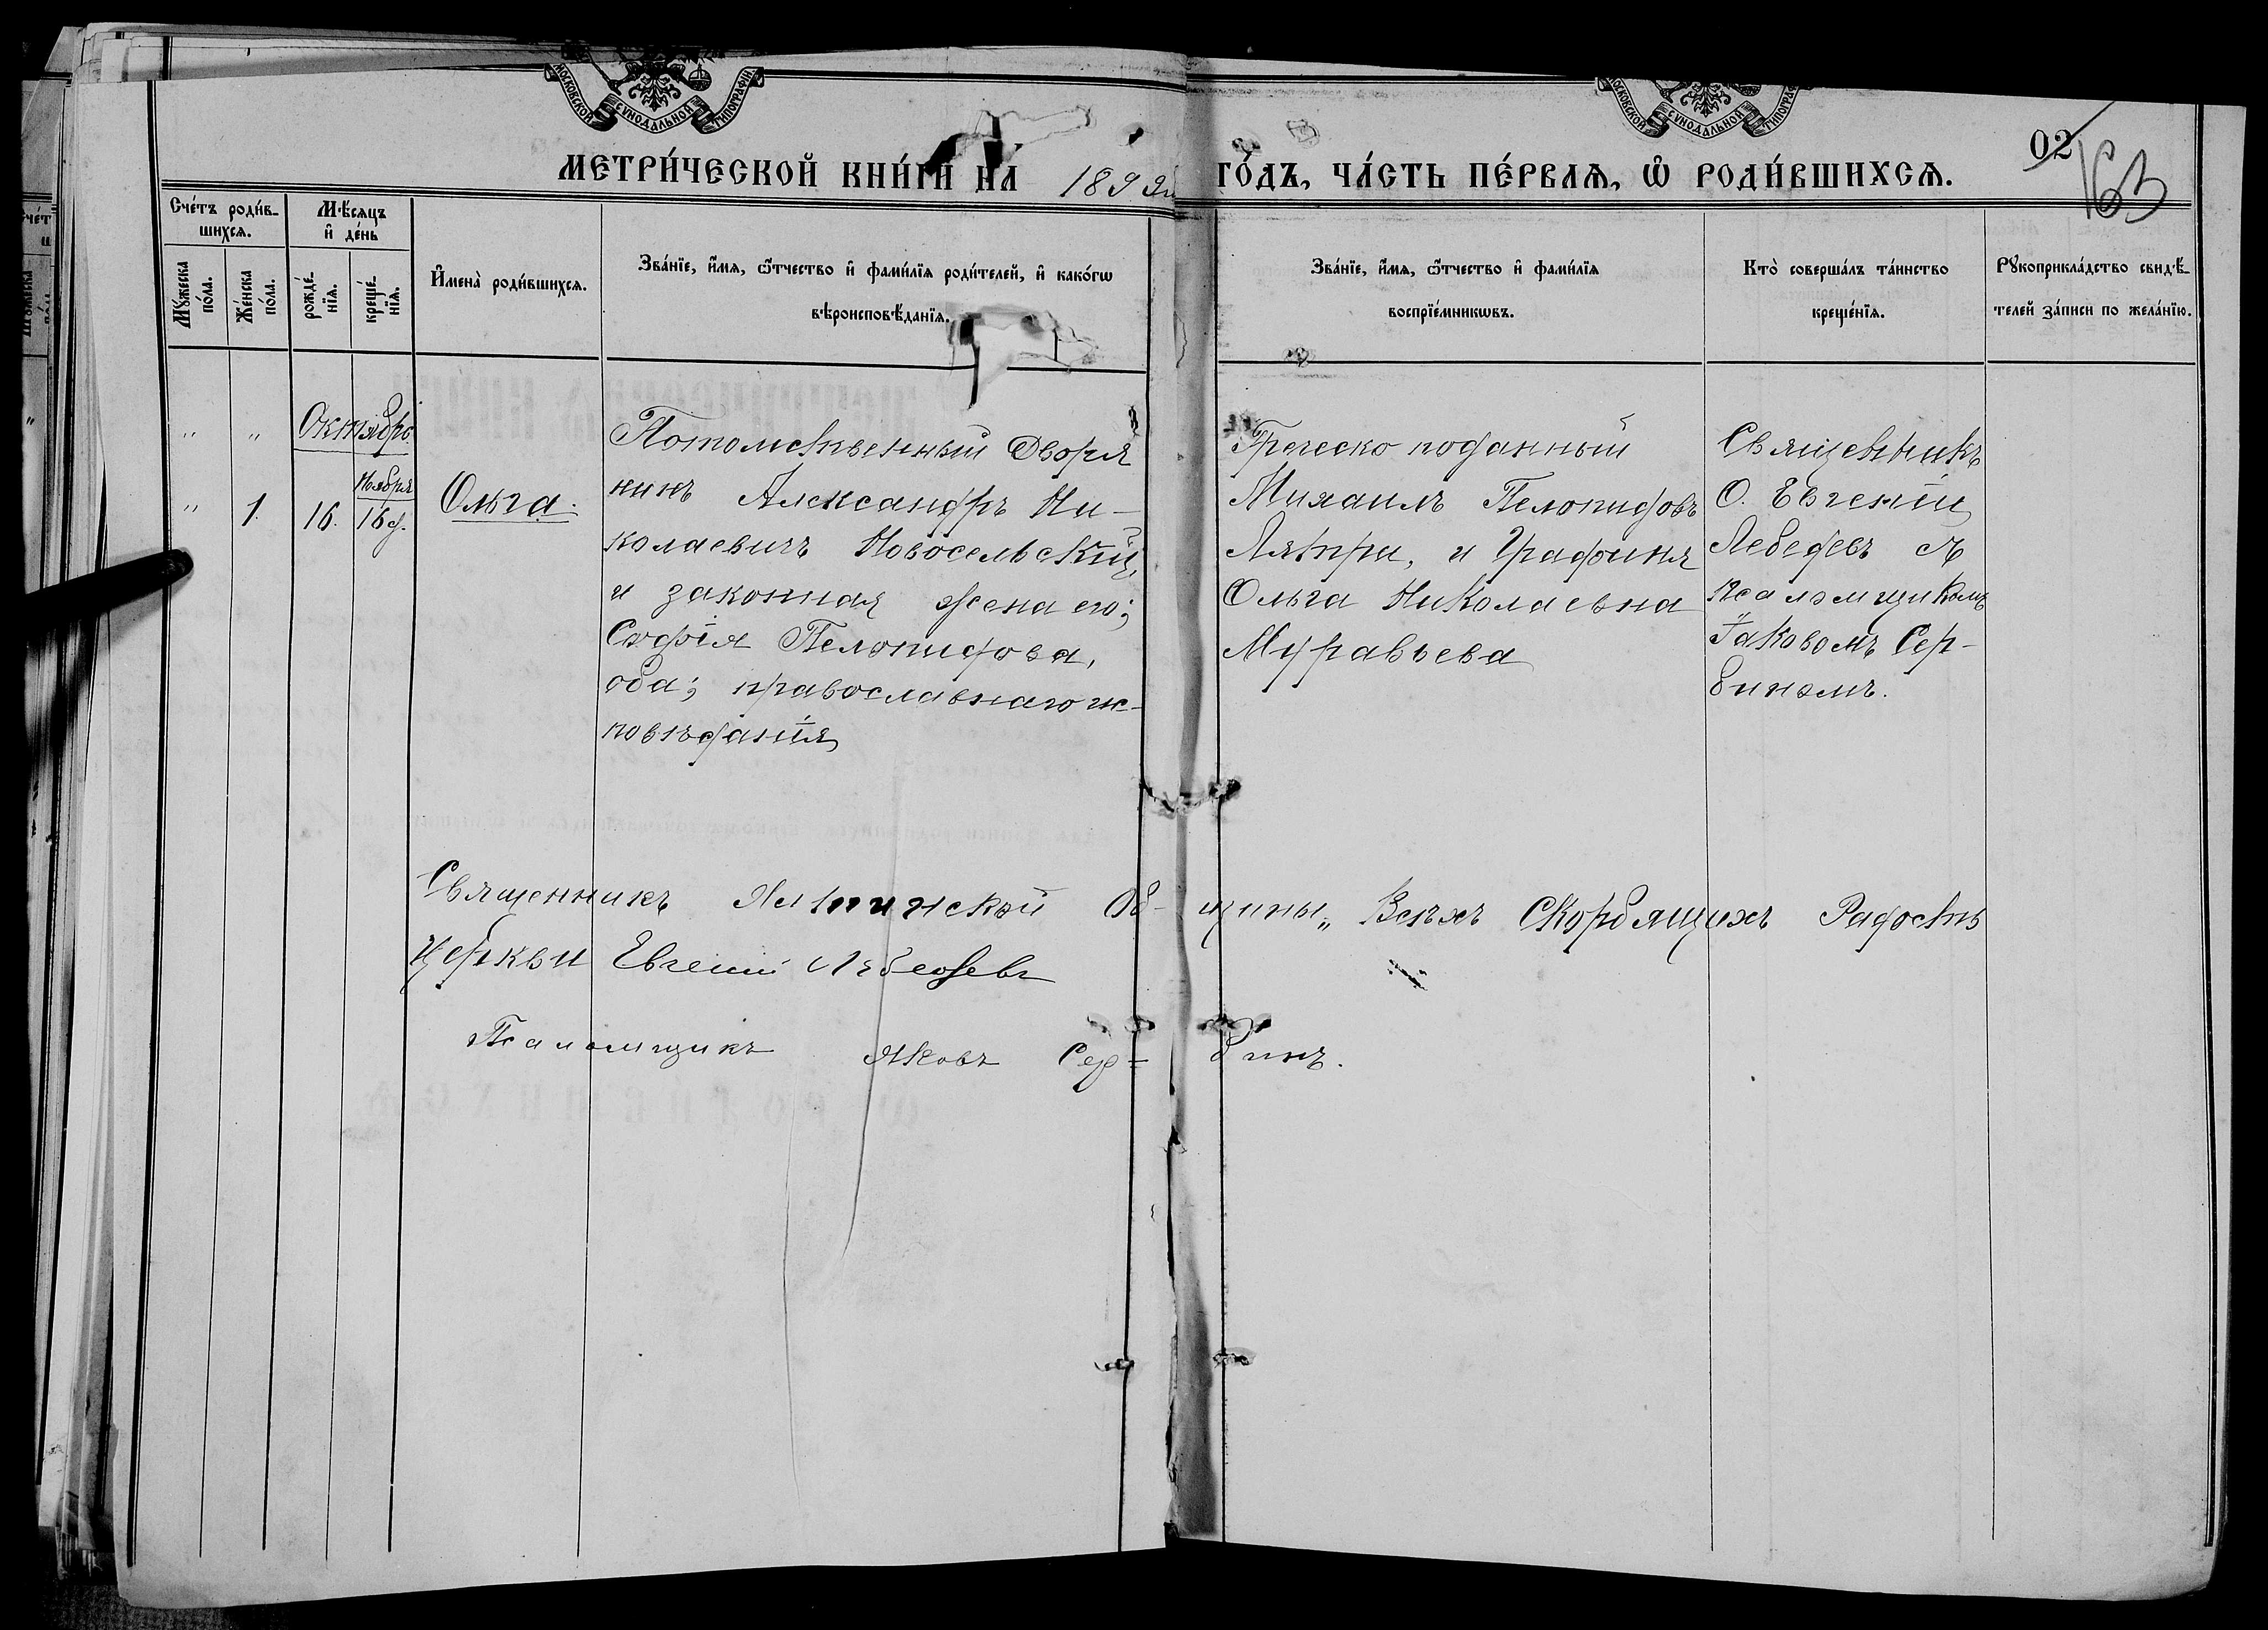 МОСКОВСКОЙ СѴНОДАЛЬНОЙ ТИПОГРАФІИ
МОСКОВСКОЙ СѴНОДАЛЬНОЙ ТИПОГРАФІИ
02
163
МЕТРИ́ЧЕСКОЙ КНИ́ГИ НА̀ 189 ГО́ДЪ, ЧА́СТЬ ПЕ́РВАѦ, Ѡ҆ РОДИ́ВШИХСѦ.
Сче́тъ роди́в-
шихсѧ.
Мꙋ́жеска
по́ла.
Же́нска
по́ла.
Мѣ́сяцъ
и҆ де́нь
рожде́-
нїѧ.
креще́-
нїѧ.
И҆мена̀ роди́вшихсѧ.
Зва́нїе, и҆́мѧ, ѻ҆́тчество и҆ фами́лїѧ роди́телей, и҆ како́гѡ
вѣроисповѣ́данїѧ.
Зва́нїе, и҆́мѧ, ѻ҆́тчество и҆ фами́лїѧ
воспрїе́мникѡвъ.
Кто̀ соверша́лъ та́инство
креще́нїѧ.
Рꙋкоприкла́дство свидѣ́-
телей за́писи по жела́нїю.
" " Октябрь
Ноября
" 1. 16. 16 д.
Ольга.
Потомственный Дворя
нинъ Александръ Ни-
колаевичъ Новосельскій,
и законная жена его;
Софія Пелопидова,
оба; православнаго ис-
повѣданія
Греческо поданный
Михаилъ Пелопидовъ
Ляпри, и Графиня
Ольга Николаевна
Муравьева
Священникъ
О. Евгеній
Лебедевъ съ
псаломщикомъ
Іаковомъ Сер-
бинымъ.
Священникъ Ялтинской Об- щины „Всѣхъ Скорбящихъ Радость
Церкви Евгеній Лебедевъ
Псаломщикъ Яковъ Сер= бинъ.